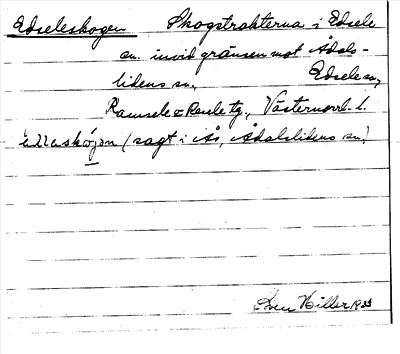 Edseleskogen Skogstrakterna i Edsele
sn. invid gränsen mot Ådals-
lidens sn. Edsele sn,
Ramsele o Resele tg., Västernorrl. l.
(sagt i Ås, Ådalslidens sn.)
Hiller 1935